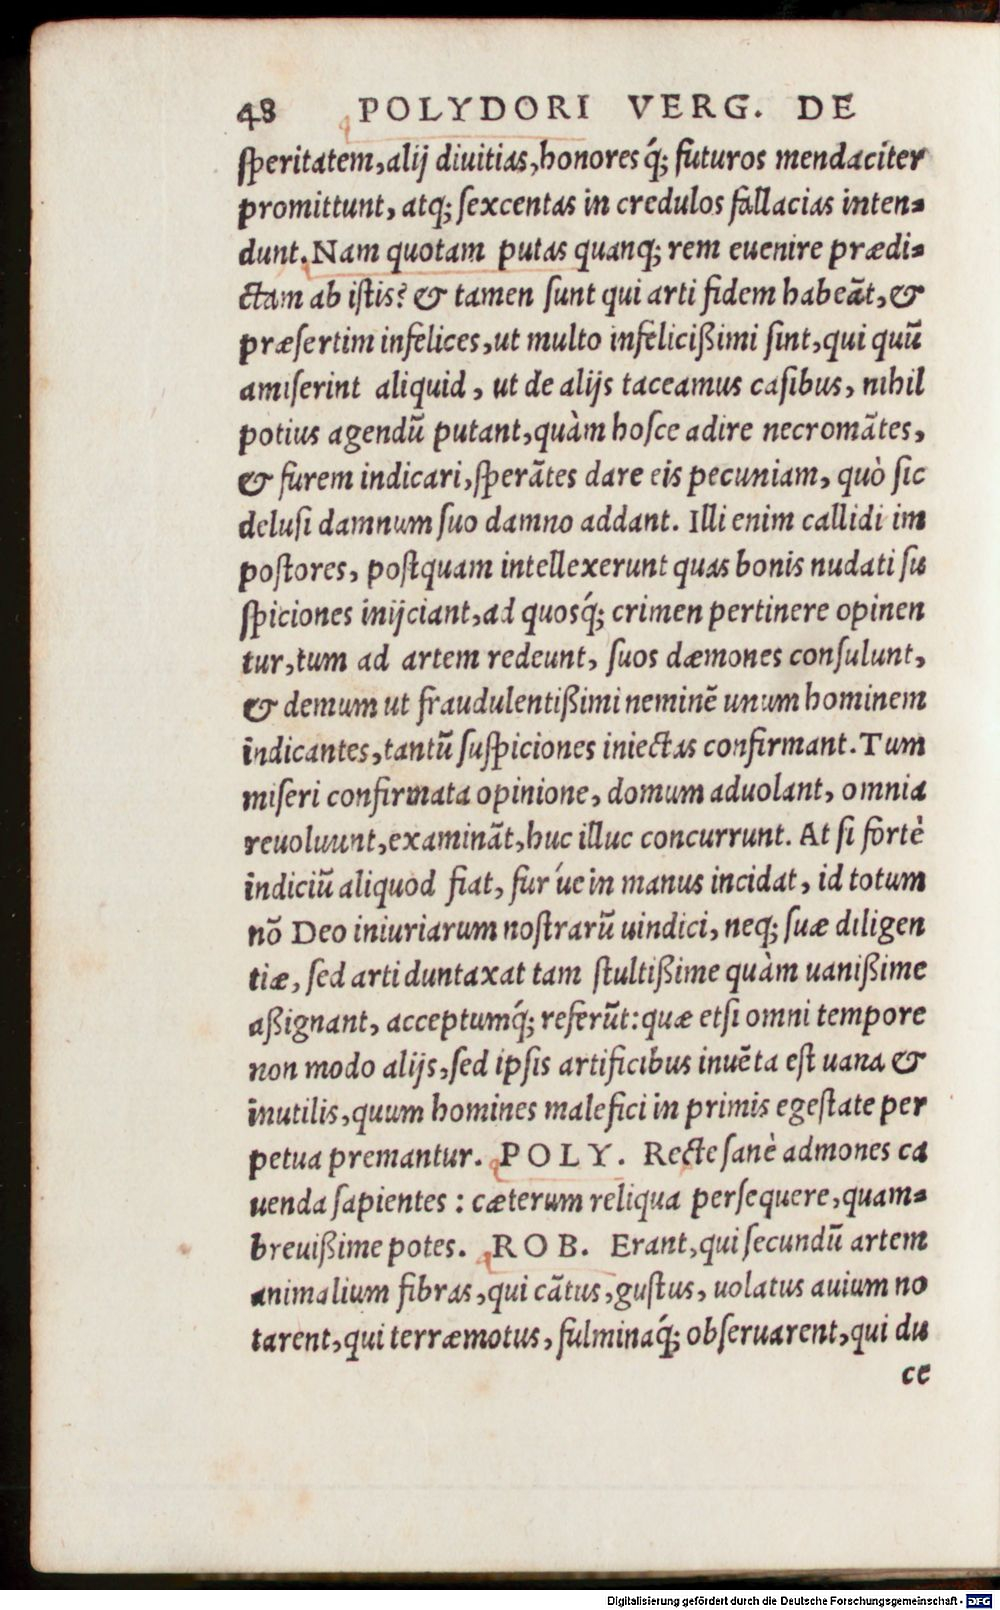 48 POLYDORI VERG. DE
ſperitatem, alij diuitias, honores q́; futuros mendaciter
promittunt, atq; ſexcentas in credulos fallacias inten-
dunt. Nam quotam putas quanq; rem euenire prædi-
ctam ab iſtis? & tamen ſunt qui arti fidem habeãt, &
præſertim infelices, ut multo infelicißimi ſint, qui quũ
amiſerint aliquid, ut de alijs taceamus caſibus, nihil
potius agendũ putant, quàm hoſce adire necromãtes,
& furem indicari, ſperãtes dare eis pecuniam, quò ſic
deluſi damnum ſuo damno addant. Illi enim callidi im
poſtores, poſtquam intellexerunt quas bonis nudati ſu
ſpiciones inijciant, ad quosq́; crimen pertinere opinen
tur, tum ad artem redeunt, ſuos dæmones conſulunt,
& demum ut fraudulentißimi neminẽ unum hominem
indicantes, tantũ ſuſpiciones iniectas confirmant. Tum
miſeri confirmata opinione, domum aduolant, omnia
reuoluunt, examinãt, huc illuc concurrunt. At ſi fortè
indiciũ aliquod fiat, fur úe in manus incidat, id totum
nõ Deo iniuriarum noſtrarũ uindici, neq; ſuæ diligen
tiæ, ſed arti duntaxat tam ſtultißime quàm uanißime
aßignant, acceptumq́; referũt: quæ etſi omni tempore
non modo alijs, ſed ipſis artificibus inuẽta eſt uana &
inutilis, quum homines malefici in primis egeſtate per
petua premantur. POLY. Recte ſanè admones ca
uenda ſapientes : cæterum reliqua perſequere, quam-
breuißime potes. ROB. Erant, qui ſecundũ artem
animalium fibras, qui cãtus, guſtus, uolatus auium no
tarent, qui terræmotus, fulminaq́; obſeruarent, qui du
ce
Digitalisierung gefördert durch die Deutsche Forschungsgemeinschaft - DFG